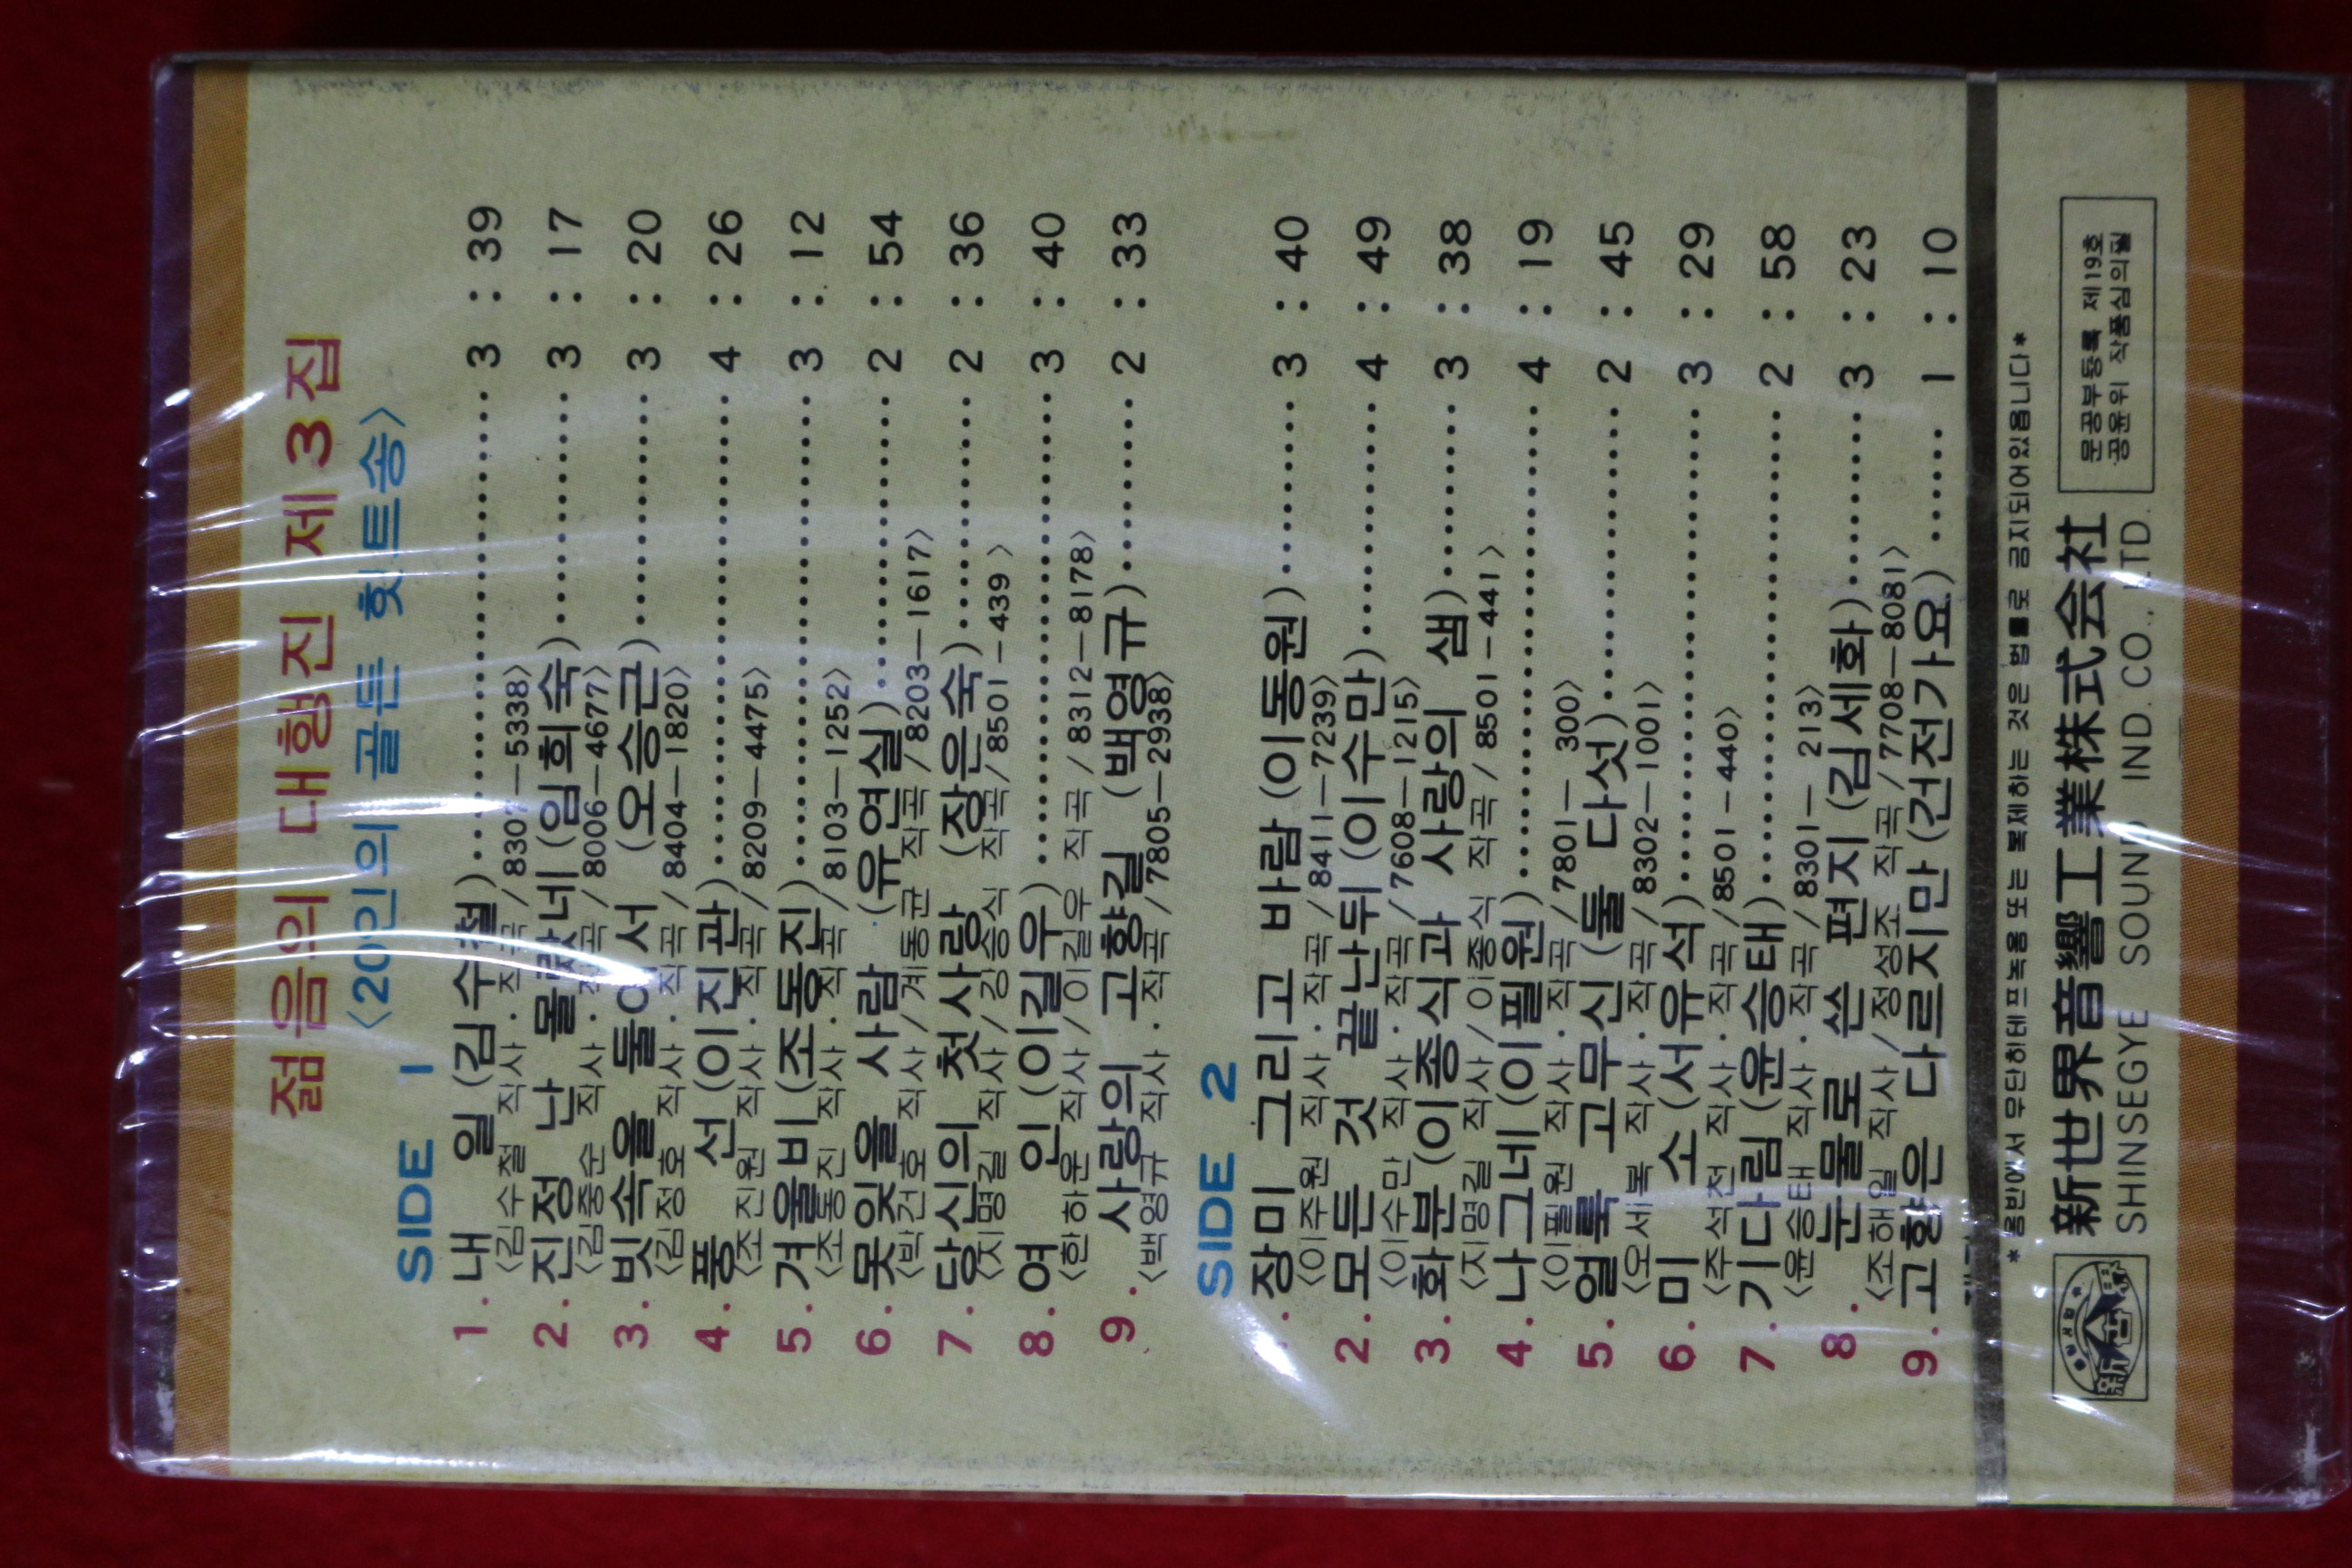 젊음의 대행진 제3집
〈20인의 골든 힛트송〉
SIDE 1
1. 내 일 (김수철) 3 : 39
〈김수철 작사 · 작곡/8307—5338〉
2. 진정 난 몰랐네 (임희숙) 3 : 17
〈김중순 작사 · 작곡/8006—4677〉
3. 빗속을 둘이서 (오승근) 3 : 20
〈김정호 작사 · 작곡/8404—1820〉
4. 풍 선 (이진관) 4 : 26
〈조진원 작사 · 작곡/8209—4475〉
5. 겨울비 (조동진) 3 : 12
〈조동진 작사 · 작곡/8103—1252〉
6. 못잊을 사람 (유연실) 2 : 54
〈박건호 작사/계동균 작곡/8203—1617〉
7. 당신의 첫사랑 (장은숙) 2 : 36
〈지명길 작사/김승식 작곡/8501—439〉
8. 여 인 (이길우) 3 : 40
〈한하운 작사/이길우 작곡/8312—8178〉
9. 사랑의 고향길 (백영규) 2 : 33
〈백영규 작사 · 작곡/7805—2938〉
SIDE 2
1. 장미 그리고 바람 (이동원) 3 : 40
〈이주원 작사 · 작곡/8411—7239〉
2. 모든 것 끝난뒤 (이수만) 4 : 49
〈이수만 작사 · 작곡/7608—1215〉
3. 화분 (이종식과 사랑의 샘) 3 : 38
〈지명길 작사/이종식 작곡/8501—441〉
4. 나그네 (이필원) 4 : 19
〈이필원 작사 · 작곡/7801— 300〉
5. 얼룩 고무신 (둘 다섯) 2 : 45
〈오세복 작사 · 작곡/8302—1001〉
6. 미 소 (서유석) 3 : 29
〈주석천 작사 · 작곡/8501—440〉
7. 기다림 (윤승태) 2 : 58
〈윤승태 작사 · 작곡/8301— 213〉
8. 눈물로 쓴 편지 (김세화) 3 : 23
〈조해일 작사/정성조 작곡/7708—8081〉
9. 고향은 다르지만 (건전가요) 1 : 10
*음반에서 무단히테프녹음 또는 복제하는 것은 법률로 금지되어있읍니다*
新世界音響工業株式会社
SHINSEGYE SOUND IND. CO., LTD.
문공부등록 제19호
공윤위 작품심의필